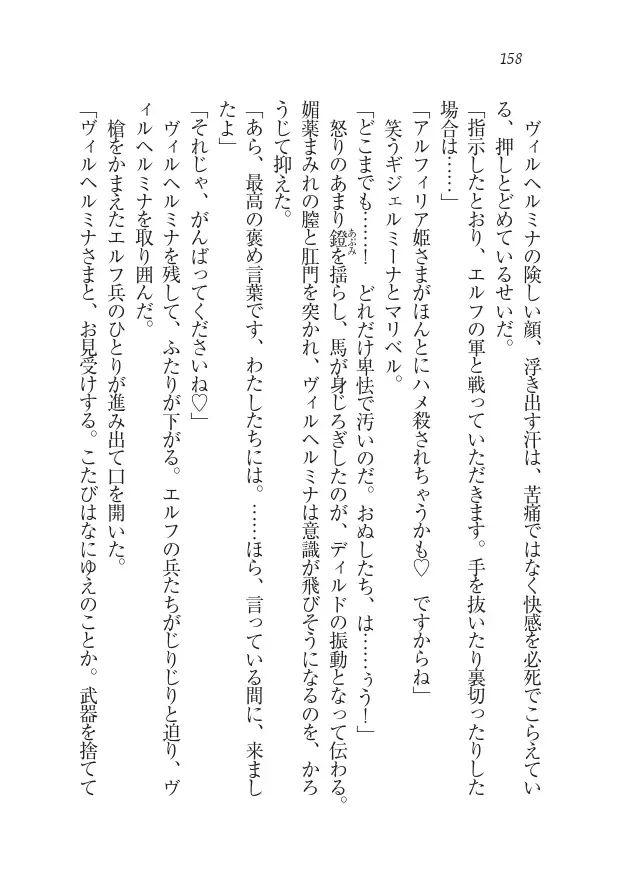 158
　ヴィルヘルミナの険しい顔、浮き出す汗は、苦痛ではなく快感を必死でこらえてい
る、押しとどめているせいだ。
「指示したとおり、エルフの軍と戦っていただきます。手を抜いたり裏切ったりした
場合は……」
「アルフィリア姫さまがほんとにハメ殺されちゃうかも♡　ですからね」
　笑うギジェルミーナとマリベル。
「どこまでも……！　どれだけ卑怯で汚いのだ。おぬしたち、は……ぅう！」
　怒りのあまり鐙あぶみを揺らし、馬が身じろぎしたのが、ディルドの振動となって伝わる。
媚薬まみれの膣と肛門を突かれ、ヴィルヘルミナは意識が飛びそうになるのを、かろ
うじて抑えた。
「あら、最高の褒め言葉です、わたしたちには。……ほら、言っている間に、来まし
たよ」
「それじゃ、がんばってくださいね♡」
　ヴィルヘルミナを残して、ふたりが下がる。エルフの兵たちがじりじりと迫り、ヴ
ィルヘルミナを取り囲んだ。
　槍をかまえたエルフ兵のひとりが進み出て口を開いた。
「ヴィルヘルミナさまと、お見受けする。こたびはなにゆえのことか。武器を捨てて